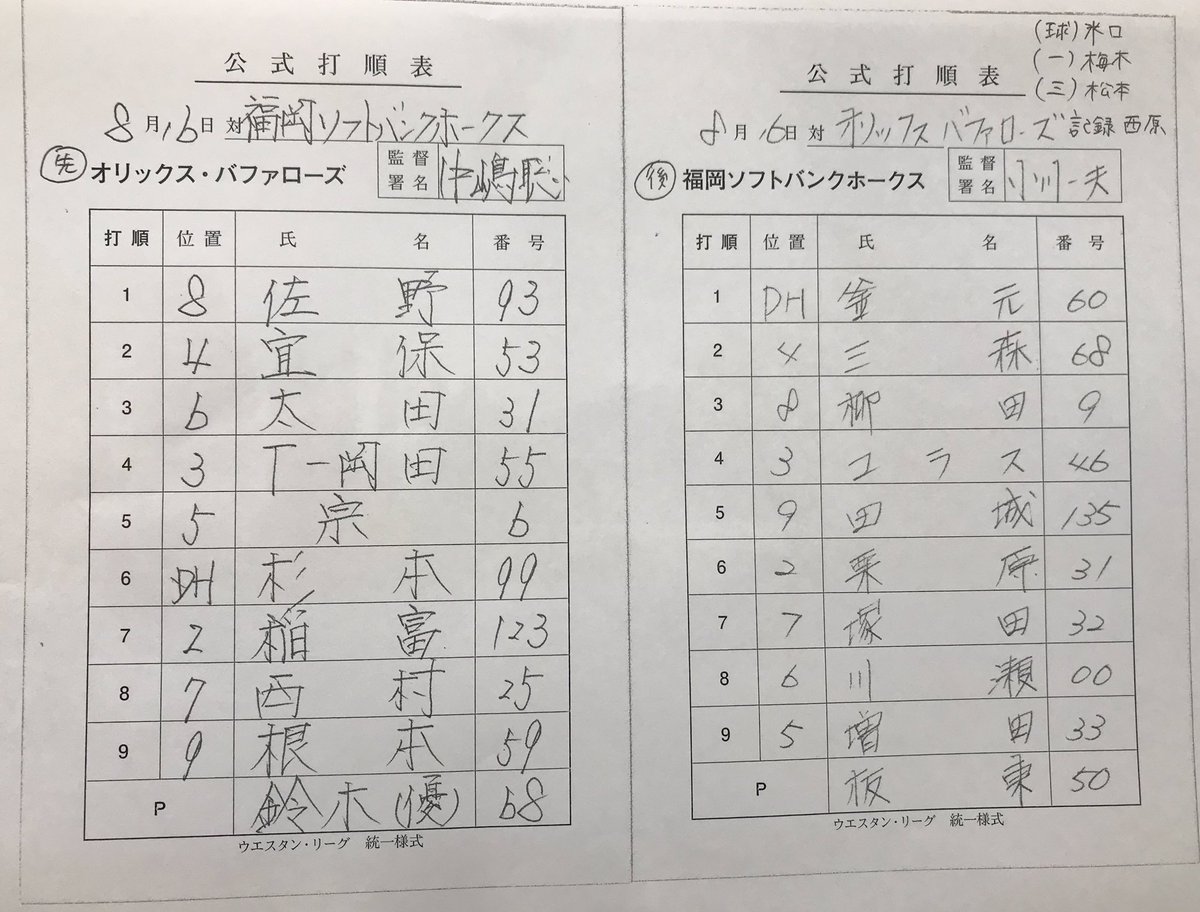 公式打順表
8月16日 対 福岡ソフトバンクホークス
先 オリックス・バファローズ 監督署名 中嶋聡
打順 位置 氏名 番号
1 8 佐野 93
2 4 宜保 53
3 6 太田 31
4 3 T-岡田 55
5 5 宗 6
6 DH 杉本 99
7 2 稲富 123
8 7 西村 25
9 9 根本 59
P 鈴木(優) 68
ウエスタン・リーグ 統一様式
(球)水口
(一)梅木
(三)松本
公式打順表
8月16日 対 オリックスバファローズ 記録 西原
後 福岡ソフトバンクホークス 監督署名 小川一夫
打順 位置 氏名 番号
1 DH 釜元 60
2 4 三森 68
3 8 柳田 9
4 3 コラス 46
5 9 田城 135
6 2 栗原 31
7 7 塚田 32
8 6 川瀬 00
9 5 増田 33
P 板東 50
ウエスタン・リーグ 統一様式